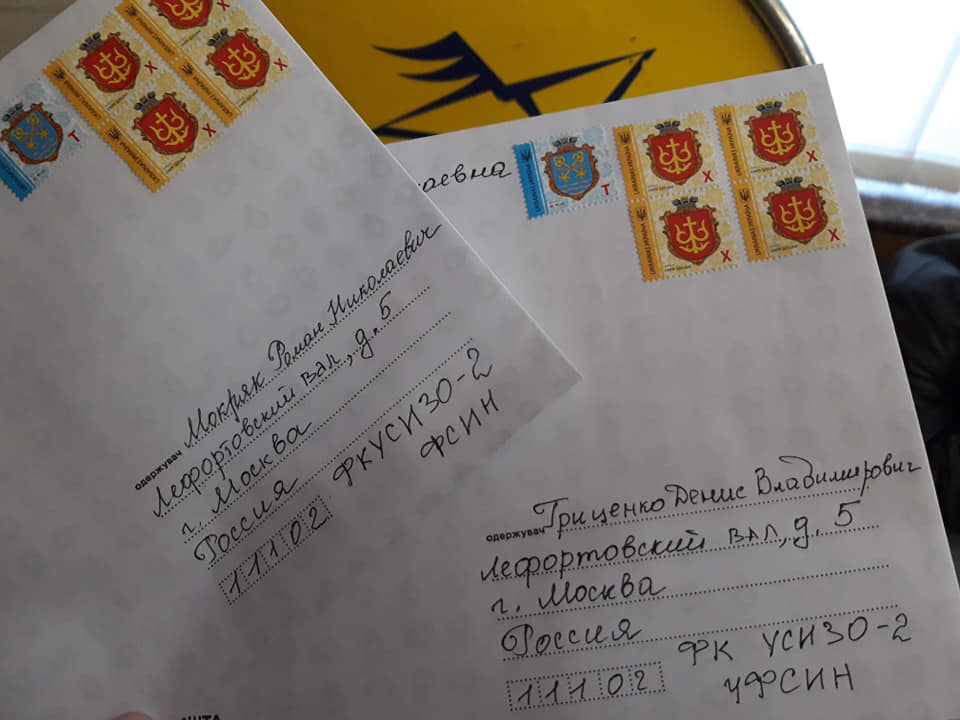 одержувач Мокряк Роман Николаевич
Лефортовский вал, д. 5
г. Москва
Россия ФКУСИЗО-2
ФСИН
11102
АШТА
аевна
одержувач Гриценко Денис Владимирович
Лефортовский вал, д. 5
г. Москва
Россия ФК УСИЗО-2
УФСИН
11102
Т
Х
Х
Х
Х
Т
Х
Х
Х
Х